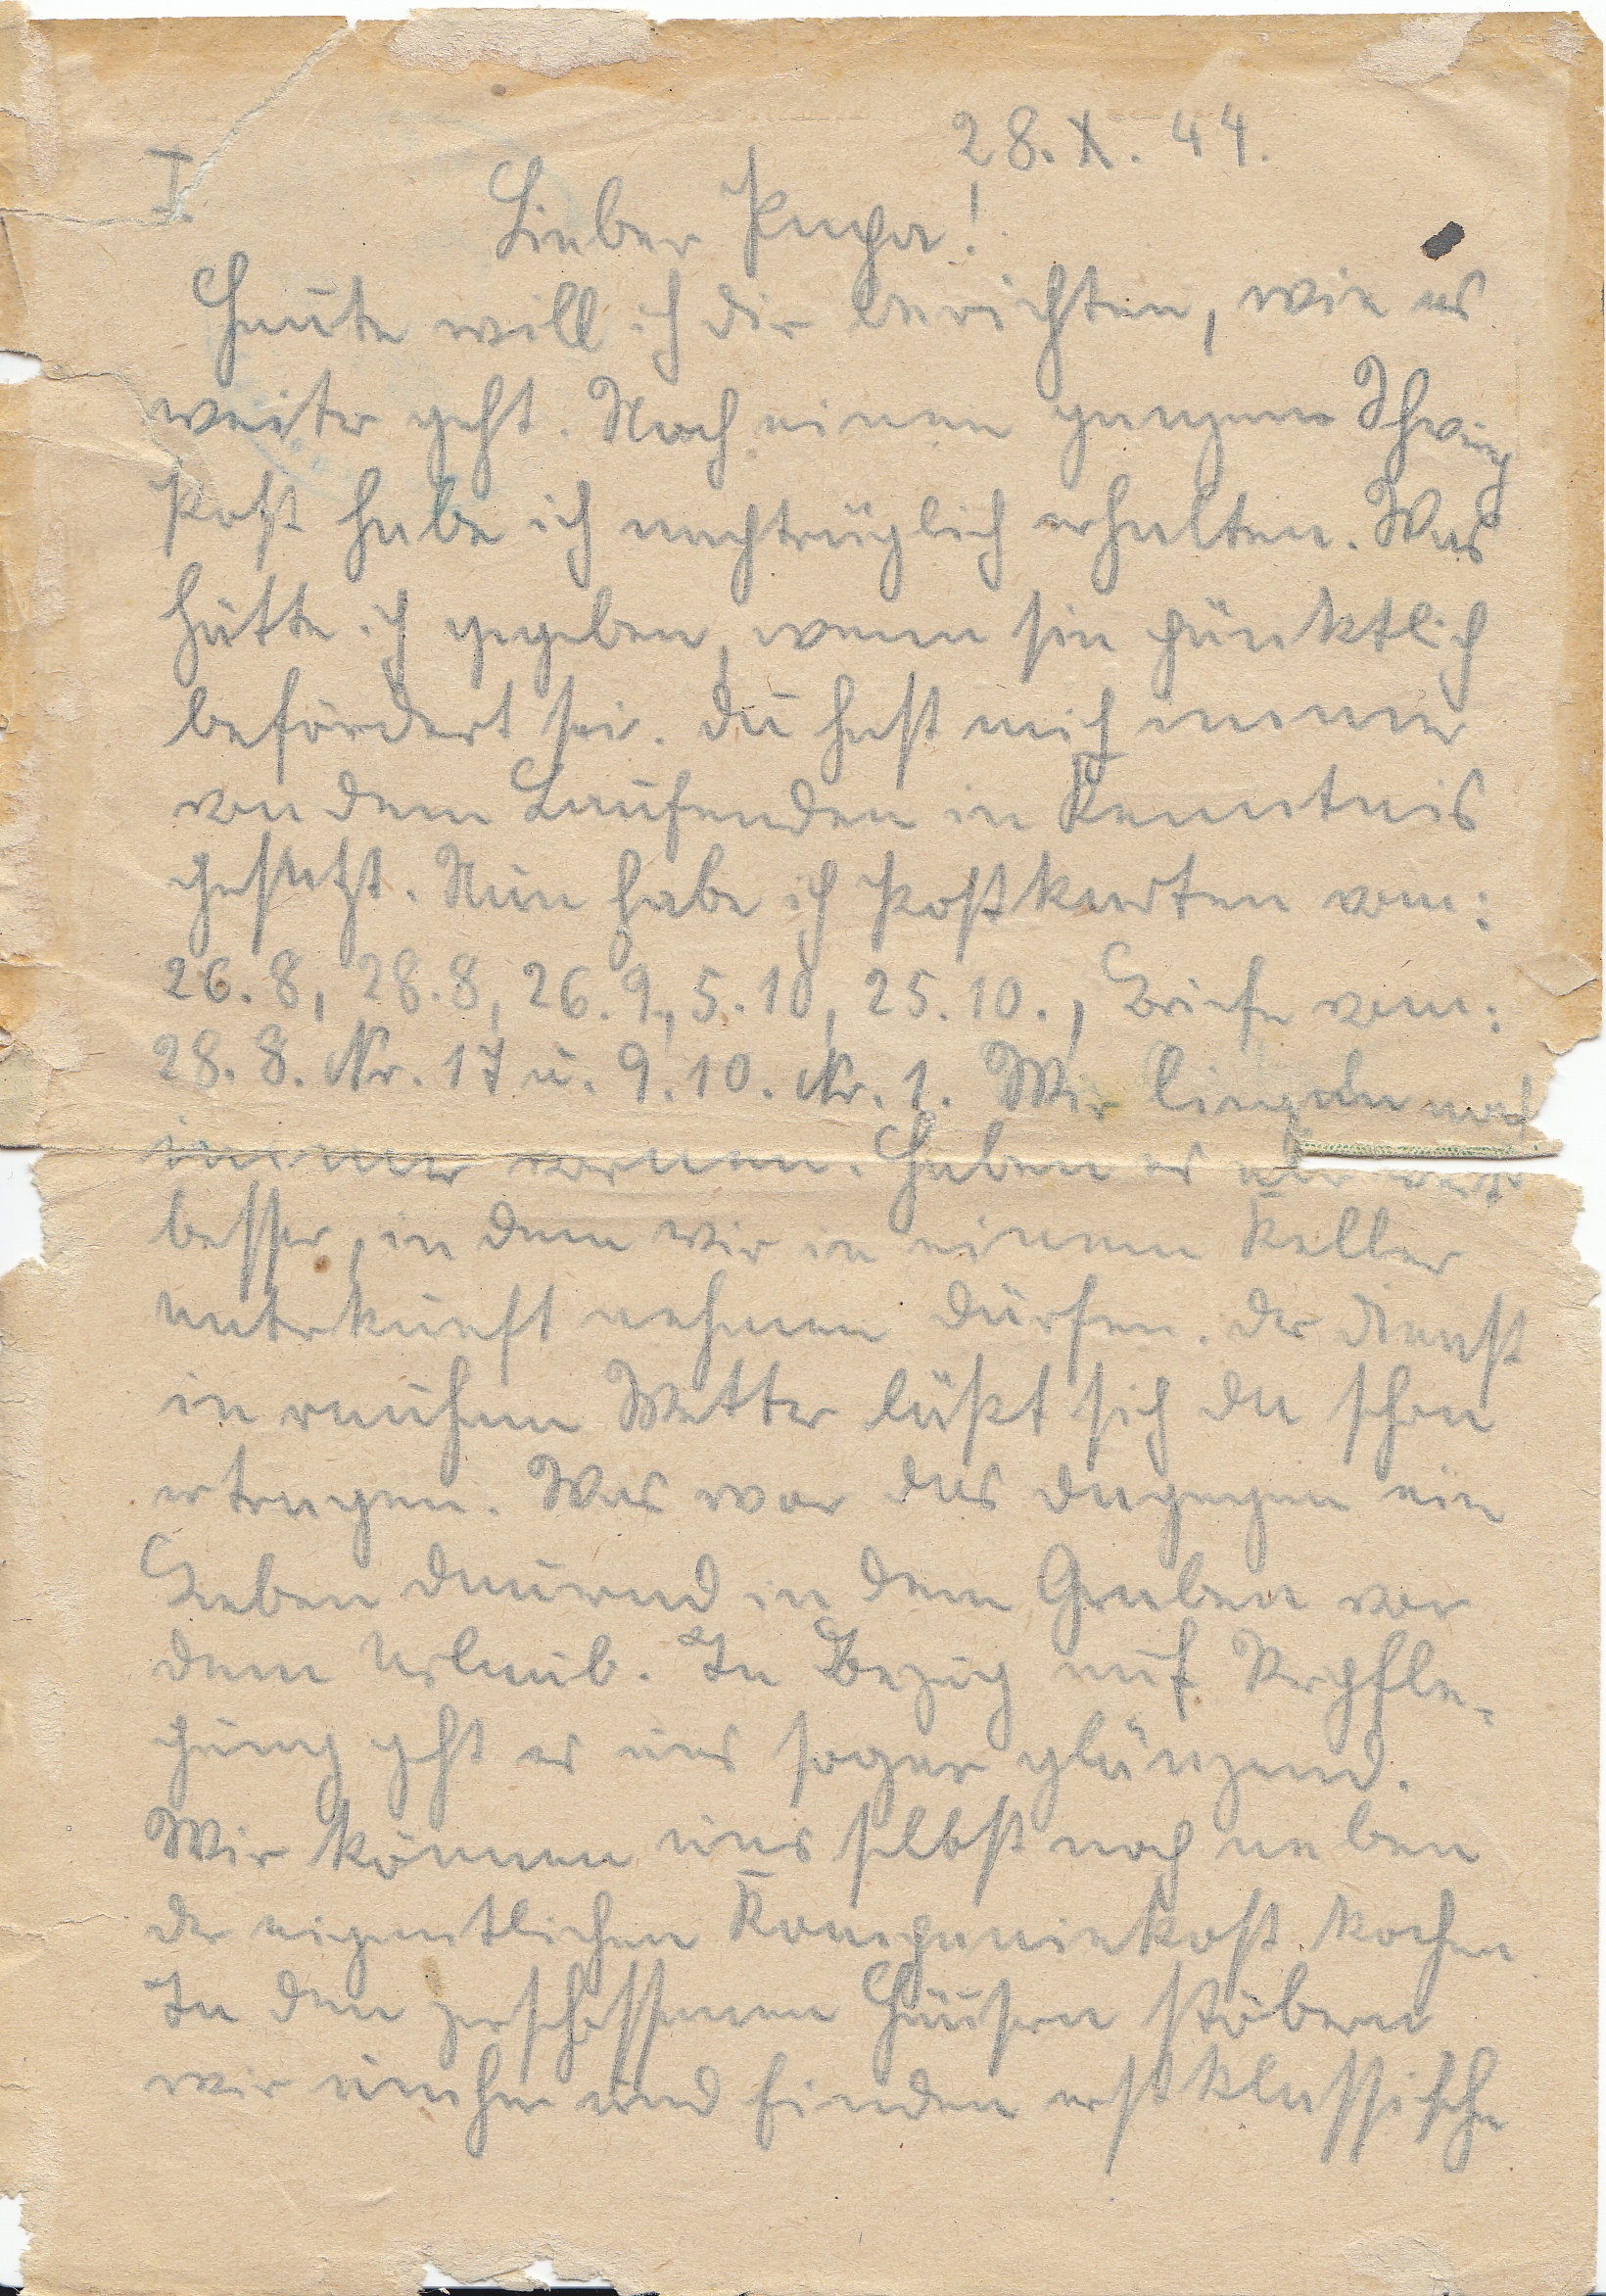 28. X. 44.
I.
Lieber Papa!
Heute will ich dir berichten, wie es
weiter geht. Noch einen ganzen
Post habe ich nachträglich erhalten. Was
hätte ich gegeben, wenn sie pünktlich
befördert sei. Du hast mich immer
von dem Laufenden in Kenntnis
gesetzt. Nun habe ich Postkarten vom:
26.8, 28.8, 26.9., 5.10, 25.10., Briefe vom:
28.8. Nr. 17 u. 9.10. Nr. 1. Wir liegen noch
immer vornen. Haben es
besser, in dem wir in einem Keller
Unterkunft nehmen dürfen. Der Dienst
in rauhem Wetter läßt sich da schon
ertragen. Was war das dagegen ein
Leben dauernd in dem Graben vor
dem Urlaub. In Bezug auf Verpfle-
gung geht es uns sogar glänzend.
Wir können uns selbst noch neben
der eigentlichen Kompaniekost kochen
In den zerschossenen Häusern stöbern
wir umher und finden erstklassische